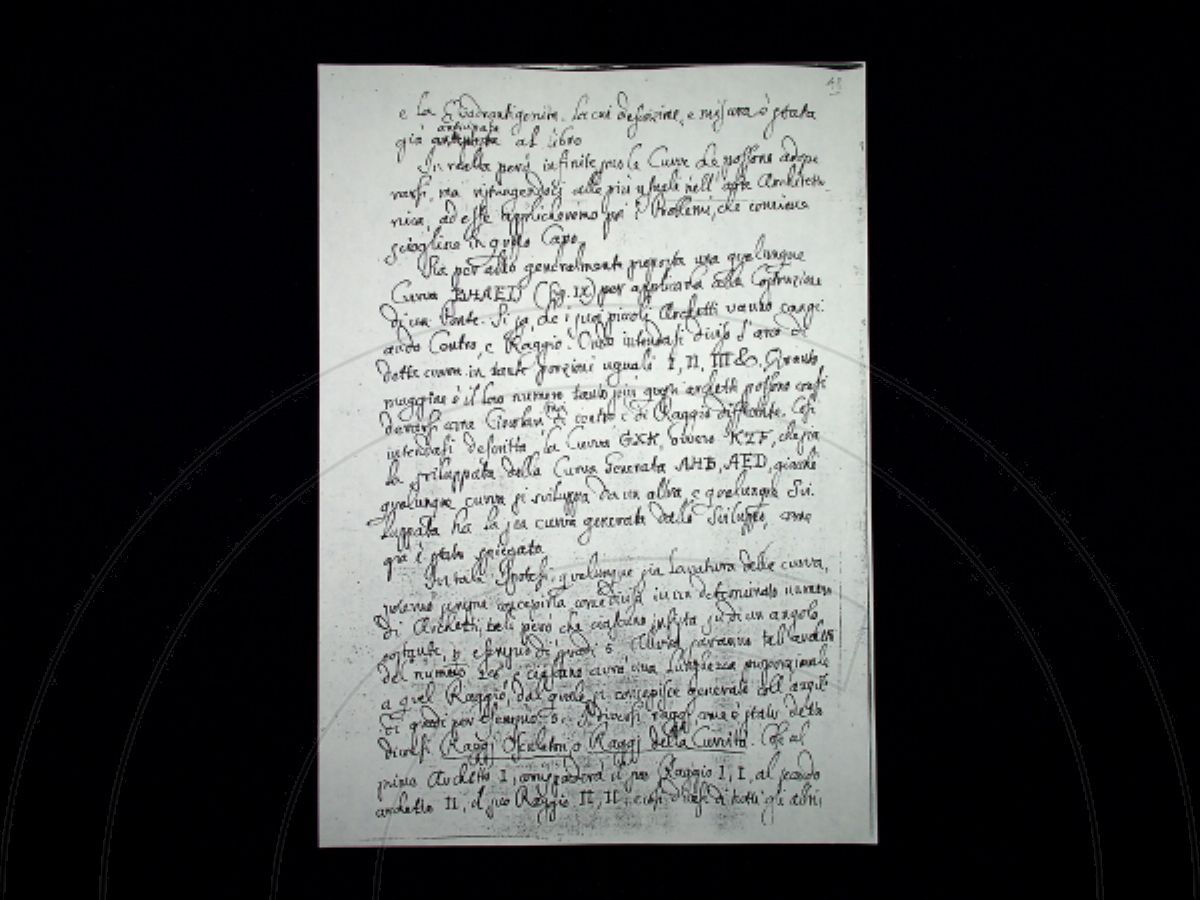 48
e la Quadrantigonia. La cui descrizione, e misura è stata
già anticipata al Libro
In realtà però infinite sono le Curve che possono adope
rarsi, ma ristringendoci alle più usuali nell' arte Architetto
nica, ad esse applicheremo poi i Problemi, che conviene
sciogliere in questo Capo.
Sia per altro generalmente proposta una qualunque
Curva BHAED (Fig. IX) per applicarla alla Costruzione
di un Ponte. Si sa, che i suoi piccoli Archetti vanno cangi
ando Centro, e Raggio. Onde intendasi diviso l'arco di
detta curva in tante porzioni uguali I, II, III &c. Quanto
maggiore è il loro numero tanto più questi archetti possono consi
derarsi come Circolari di centro e di Raggio differente. Così
intendasi descritta la Curva GXK, ovvero KZF, che sia
la sviluppata della Curva Generata AHB, AED, giacchè
qualunque curva si sviluppa da un altra, e qualunque Svi
luppata ha la sua curva generata dallo Sviluppo, come
già è stato spiegato
In tale Ipotesi, qualunque sia la natura della curva,
potremo sempre concepirla come divisa in un determinato numero
di Archetti, tali però che ciascuno insista su di un angolo
costante, p. esempio di gradi 5. Allora saranno tali archetti
del numero e ciascuno avrà una lunghezza proporzionale
a quel Raggio, dal quale si concepisce generato coll' angolo
di gradi per esempio 5. I diversi raggi, come è stato detto
diconsi Raggj Osculatori, o Raggj della Curvità. Così al
primo Archetto I, corrisponderà il suo Raggio I, I, al secondo
archetto II, il suo Raggio II, II, e così dicasi di tutti gli altri,